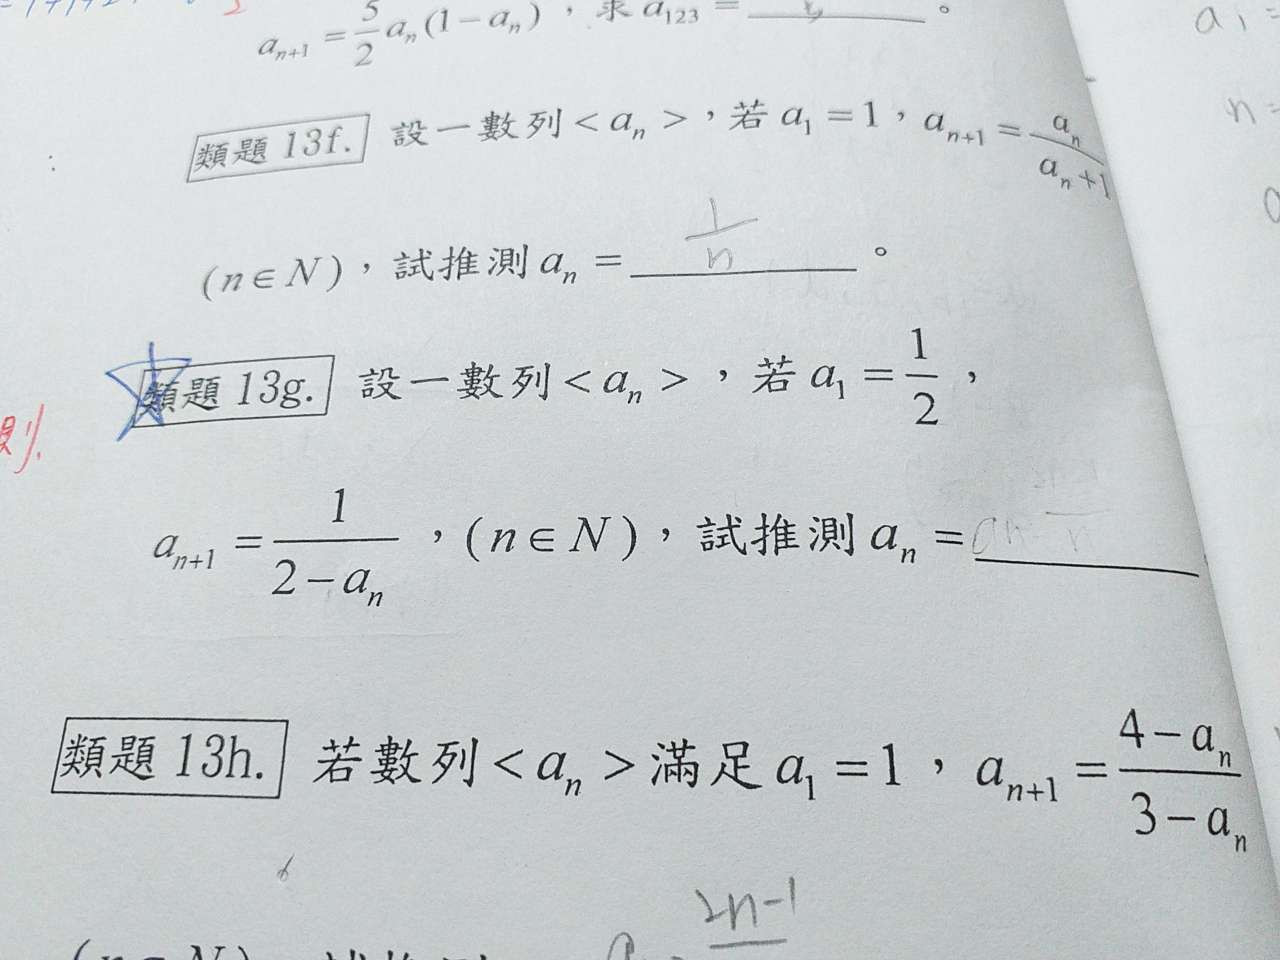 a_{n+1} = \frac{5}{2} a_n (1 - a_n),求 a_{123} =
類題 13f. 設一數列 < a_n >,若 a_1 = 1,a_{n+1} = \frac{a_n}{a_n + 1}
(n ∈ N),試推測 a_n = \frac{1}{n}。
類題 13g. 設一數列 < a_n >,若 a_1 = \frac{1}{2},
a_{n+1} = \frac{1}{2 - a_n},(n ∈ N),試推測 a_n =
類題 13h. 若數列 < a_n > 滿足 a_1 = 1,a_{n+1} = \frac{4 - a_n}{3 - a_n}
2n-1